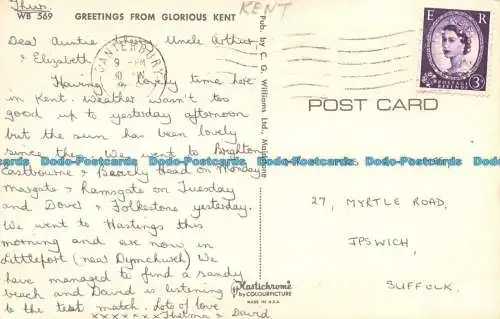 Thurs.
WB 569 GREETINGS FROM GLORIOUS KENT
KENT
Dear Auntie Uncle Arthur
& Elizabeth
Having a lovely time here
in Kent. Weather wasn't too
good up to yesterday afternoon
but the sun has been lovely
since then. We went to Brighton
Eastbourne & Beachy Head on Monday
Margate & Ramsgate on Tuesday
and Dover & Folkestone yesterday.
We went to Hastings this
morning and are now in
Littleport (near Dymchurch) We
have managed to find a sandy
beach and David is listening
to the test match. Lots of love
xxxxxxx Thelma & David
CANTERBURY
9 - PM
10
Pub. by C. G. Williams Ltd., Maidstone
Plastichrome
by COLOURPICTURE
MADE IN U.S.A.
E R
POSTAGE
REVENUE
3D
POST CARD
27, MYRTLE ROAD,
IPSWICH,
SUFFOLK.
Dodo-Postcards Dodo-Postcards Dodo-Postcards Dodo-Postcards
Dodo-Postcards Dodo-Postcards Dodo-Postcards Dodo-Postcards